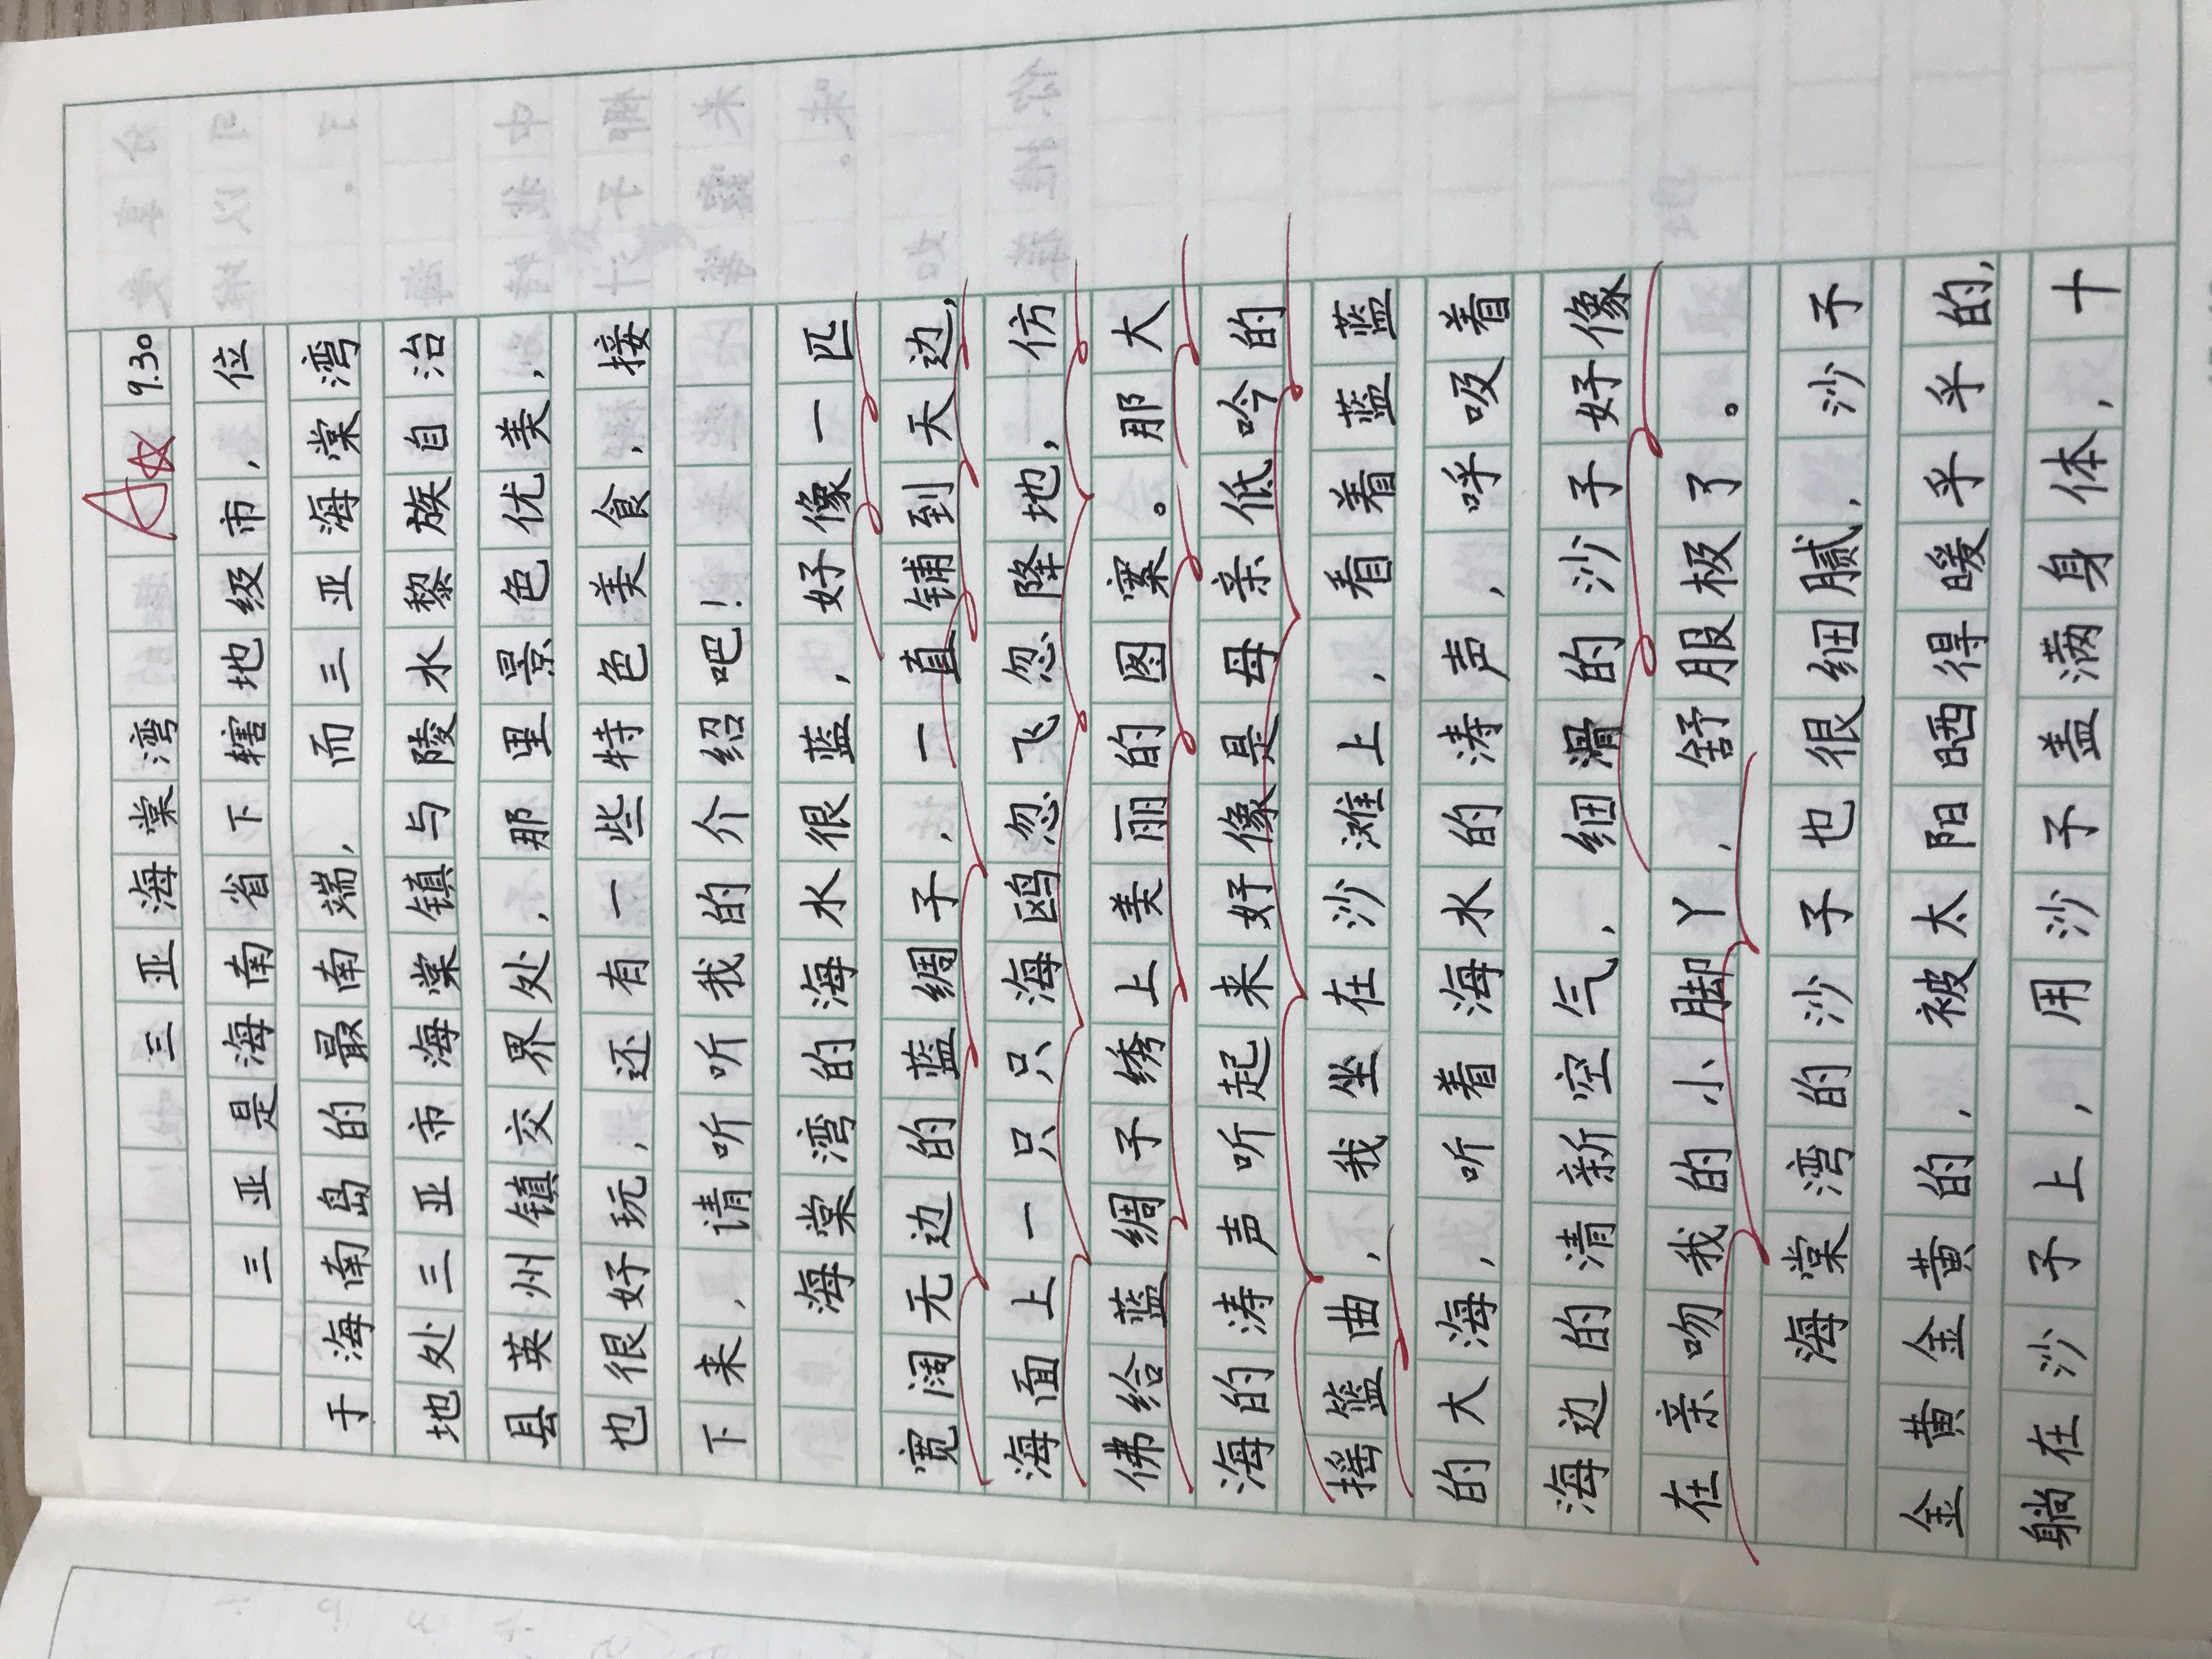 三亚海棠湾 A☆ 9.30
三亚是海南省下辖地级市，位
于海南岛的最南端，而三亚海棠湾
地处三亚市海棠镇与陵水黎族自治
县英州镇交界处，那里景色优美，
也很好玩，还有一些特色美食，接
下来，请听听我的介绍吧！
海棠湾的海水很蓝，好像一匹
宽阔无边的蓝绸子，一直铺到天边，
海面上一只只海鸥忽飞忽降地，仿
佛给蓝绸子绣上美丽的图案。那大
海的涛声听起来好像是母亲低吟的
摇篮曲，我坐在沙滩上，看着蓝蓝
的大海，听着海水的涛声，呼吸着
海边的清新空气，细滑的沙子好像
在亲吻我的小脚丫，舒服极了。
海棠湾的沙子也很细腻，沙子
金黄金黄的，被太阳晒得暖乎乎的，
躺在沙子上，用沙子盖满身体，十